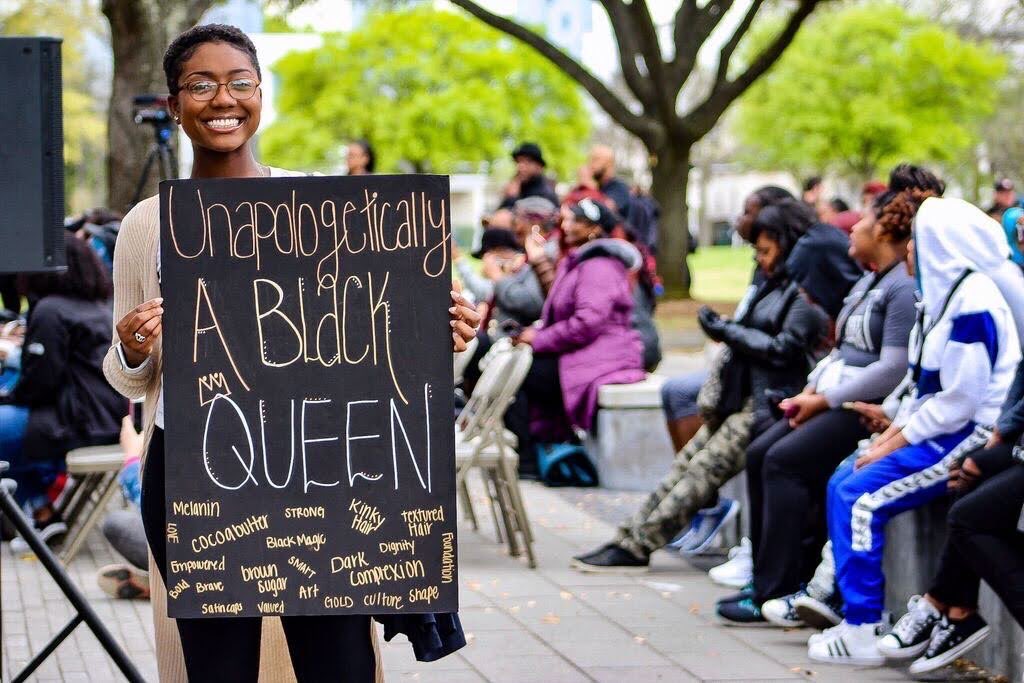 Unapologetically
A Black
QUEEN
Melanin
STRONG
Kinky
Hair
textured
Hair
LOVE
cocoabutter
Black Magic
Dignity
Foundation
Empowered
brown
sugar
SMART
Dark
Complexion
Bold
Brave
Art
Satin caps
valued
GOLD
culture
shape